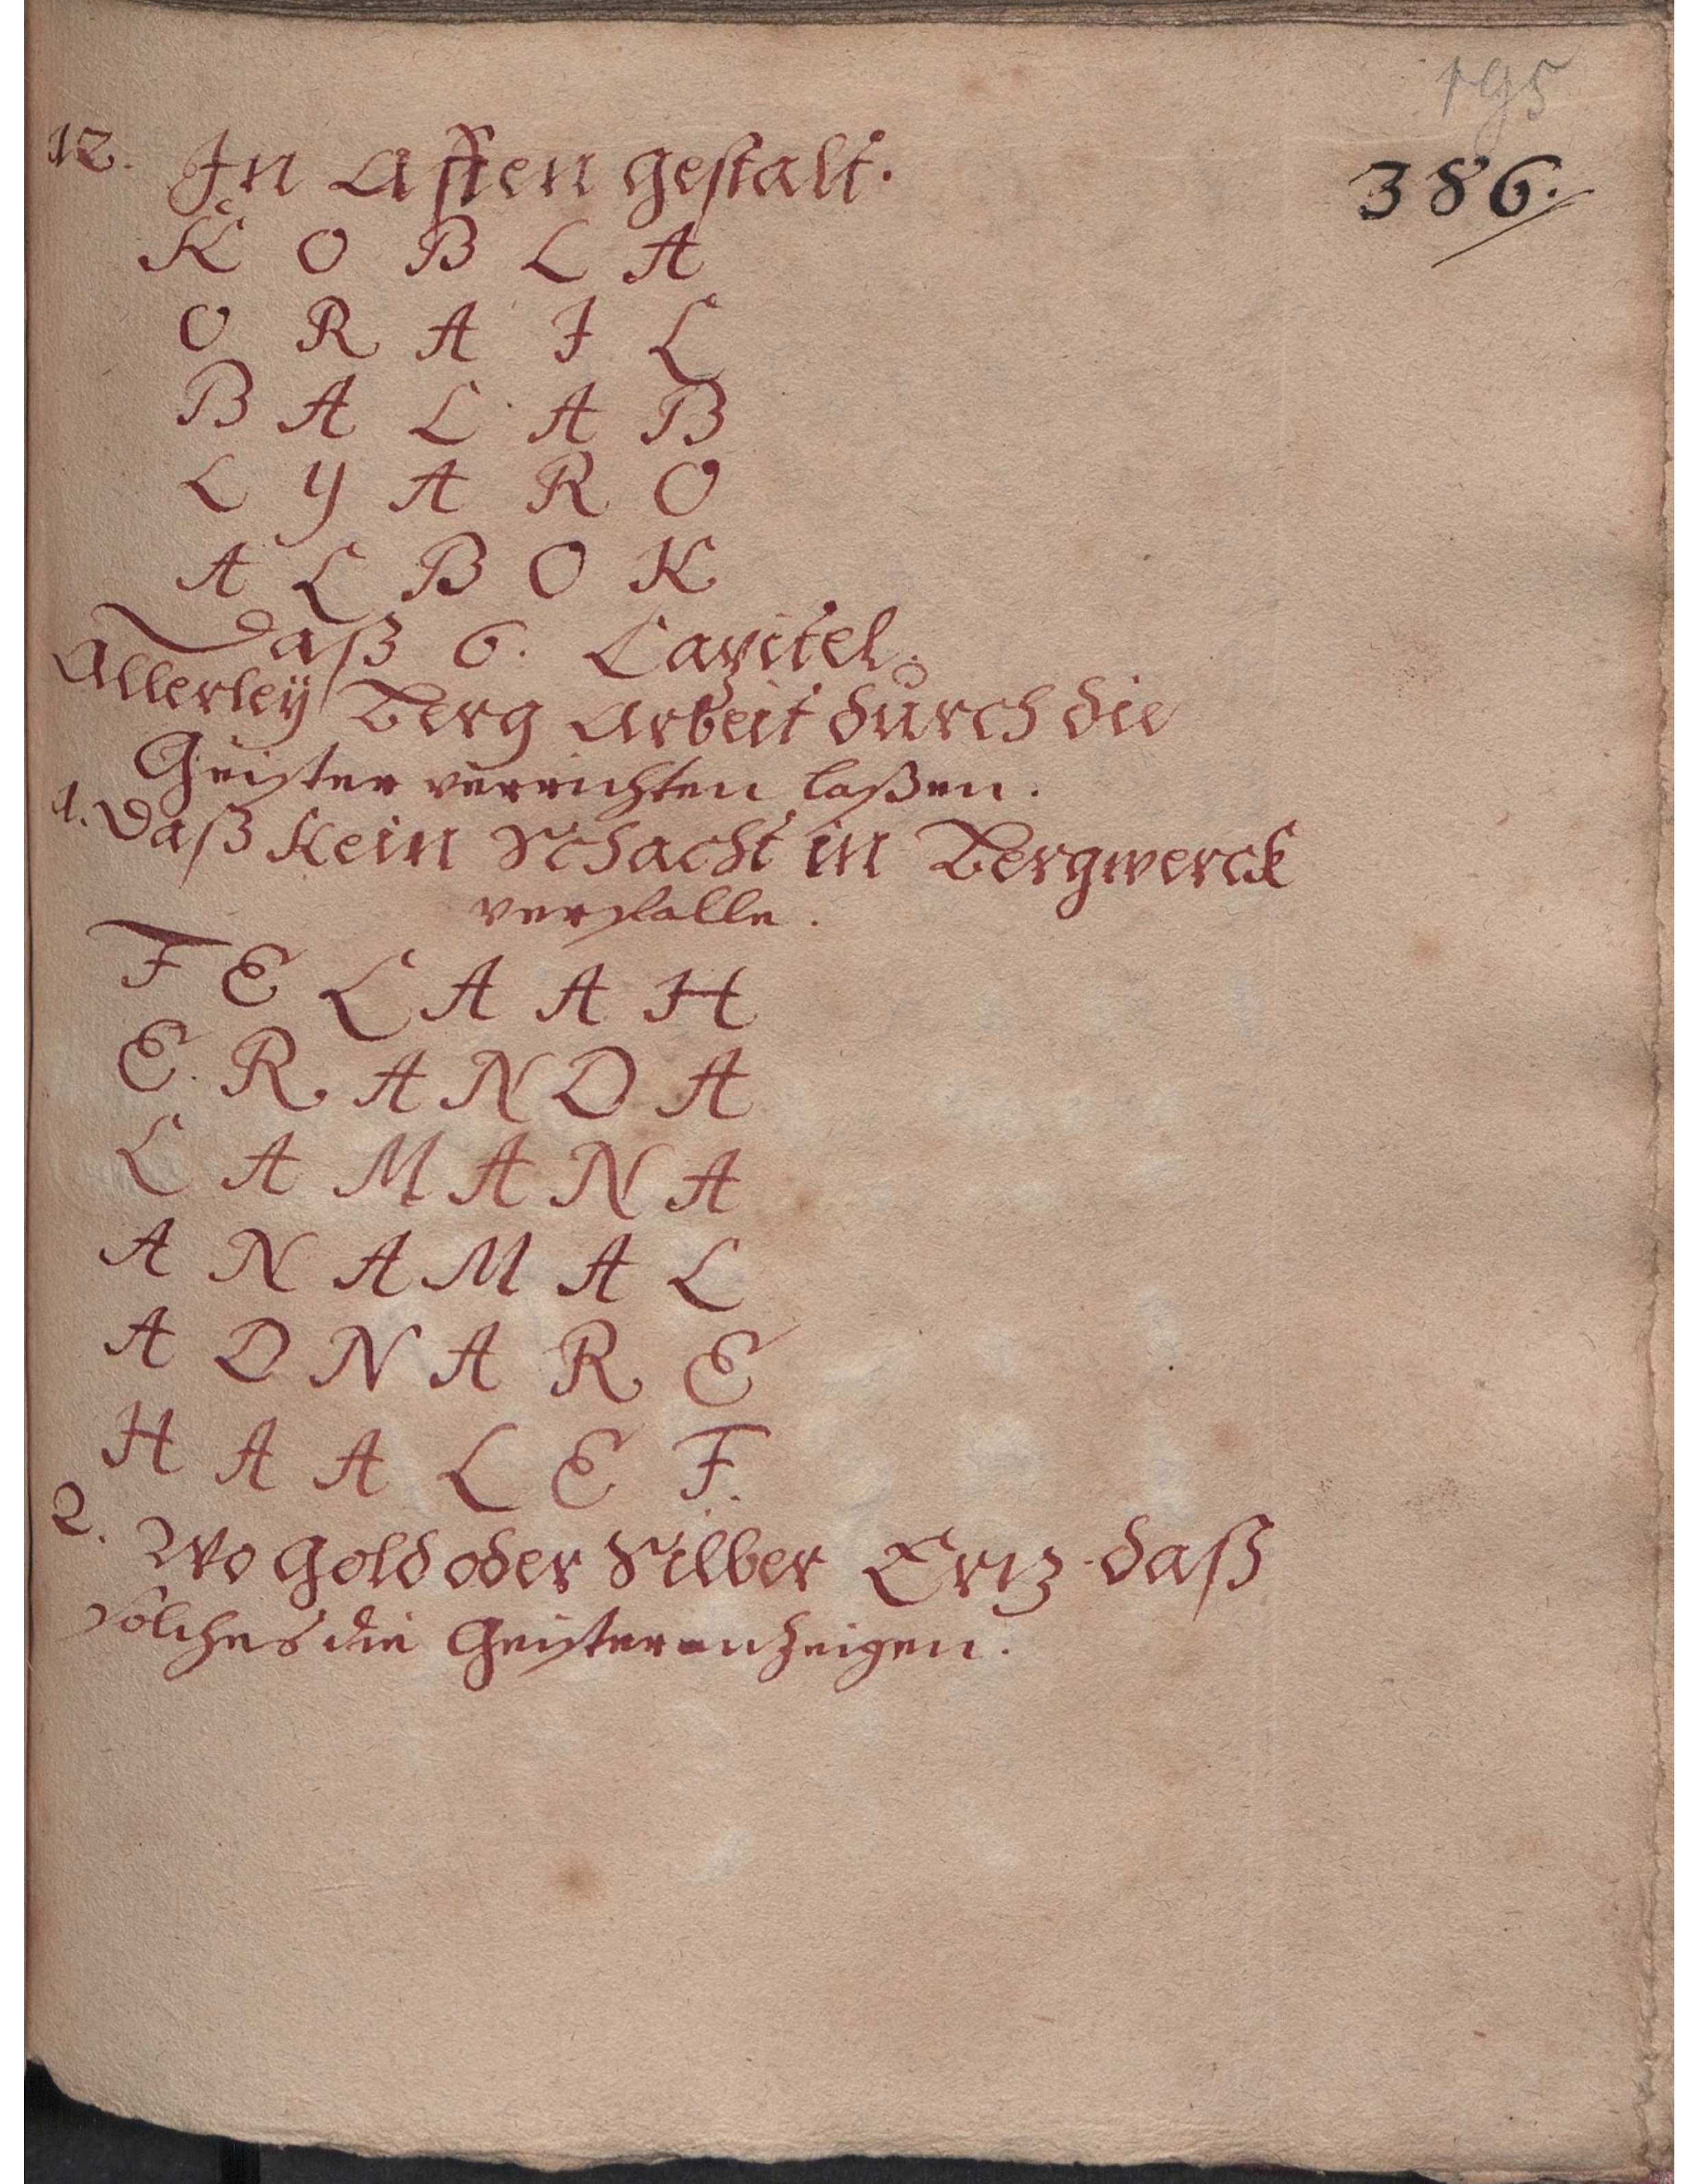 195
386.
12. In Affen gestalt.
K O B L A
O R A I L
B A L A B
L Y A R O
A L B O K
Daß 6. Capitel.
Allerley Berg Arbeit durch die
Geister verrichten laßen.
1. Daß kein Schacht in Bergwerck
verfalle.
F E L A A H
E R A N D A
L A M A N A
A N A M A L
A D N A R E
H A A L E F.
2. Wo Gold oder Silber Ertz daß
solches die Geister anzeigen.